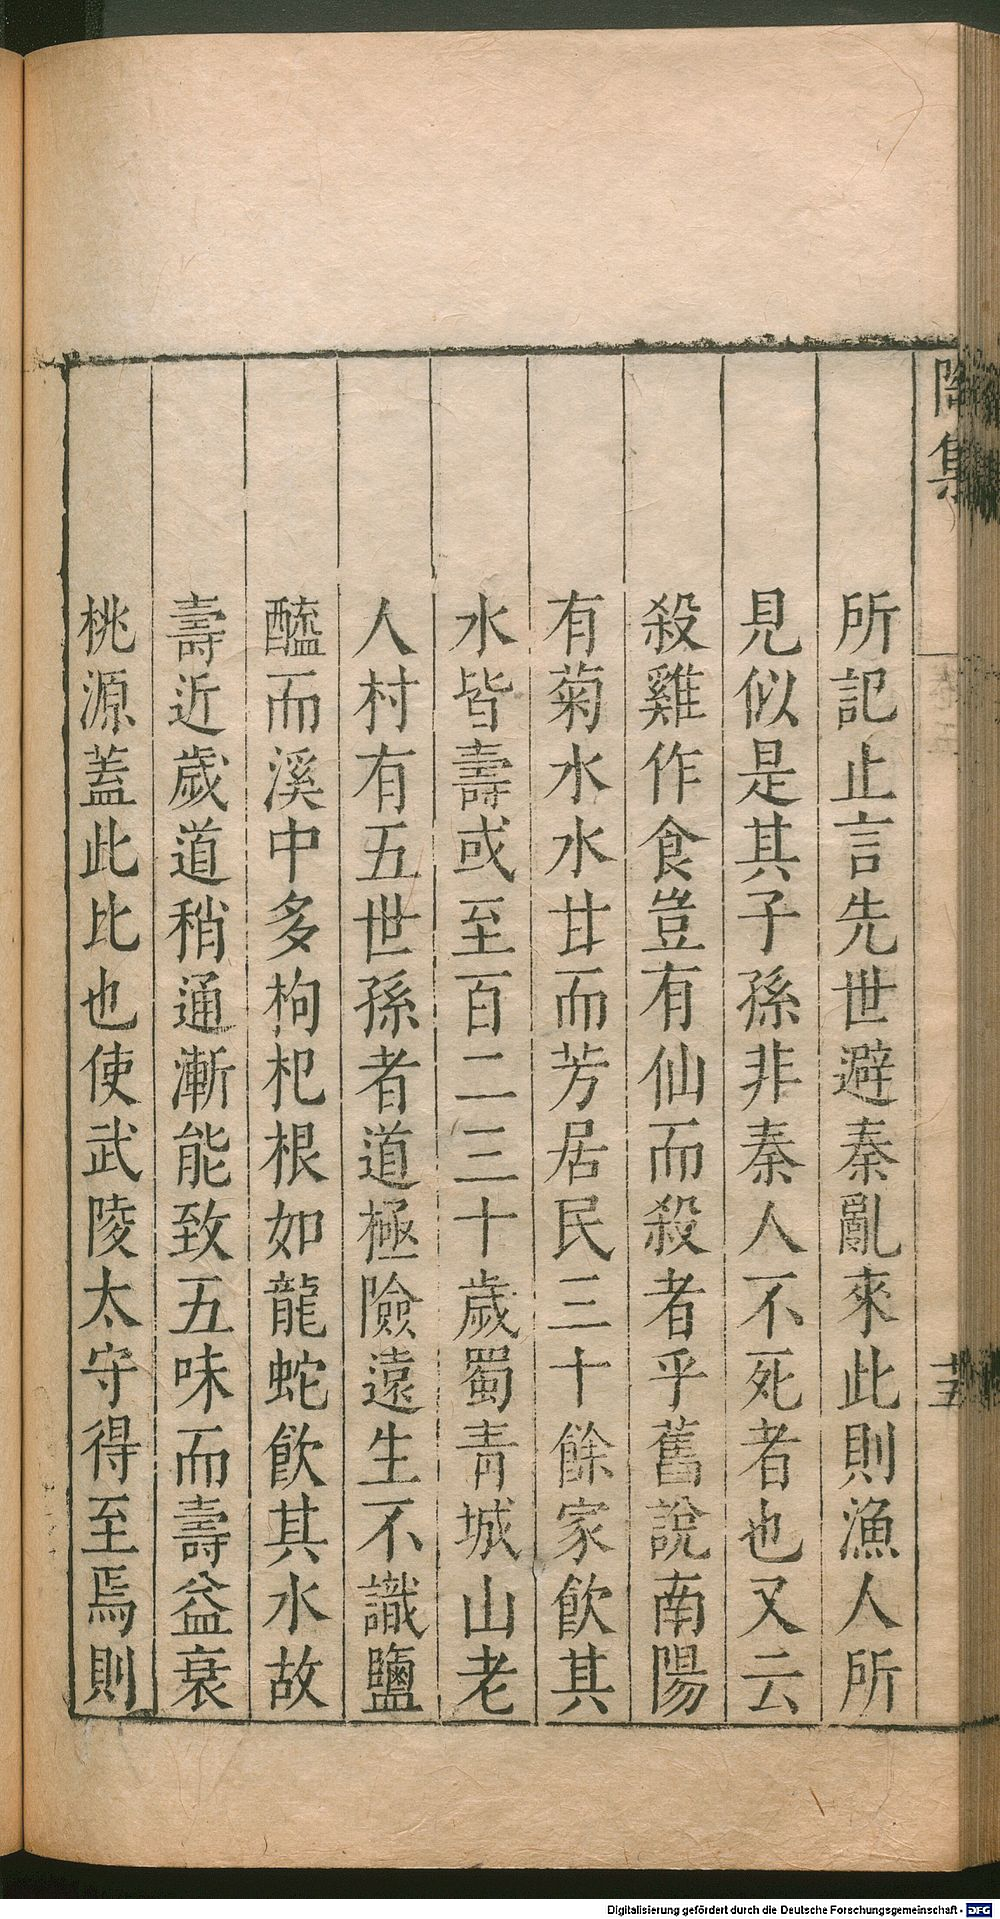 陶集
十五
所記止言先世避秦亂來此則漁人所
見似是其子孫非秦人不死者也又云
殺雞作食豈有仙而殺者乎舊說南陽
有菊水水甘而芳居民三十餘家飲其
水皆壽或至百二三十歲蜀青城山老
人村有五世孫者道極險遠生不識鹽
醯而溪中多枸杞根如龍蛇飲其水故
壽近歲道稍通漸能致五味而壽益衰
桃源蓋此比也使武陵太守得至焉則
Digitalisierung gefördert durch die Deutsche Forschungsgemeinschaft - DFG